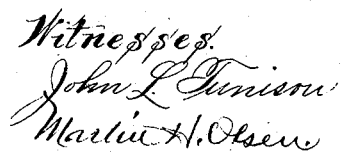 Witnesses.
John L. Tunison
Martin H. Olsen.